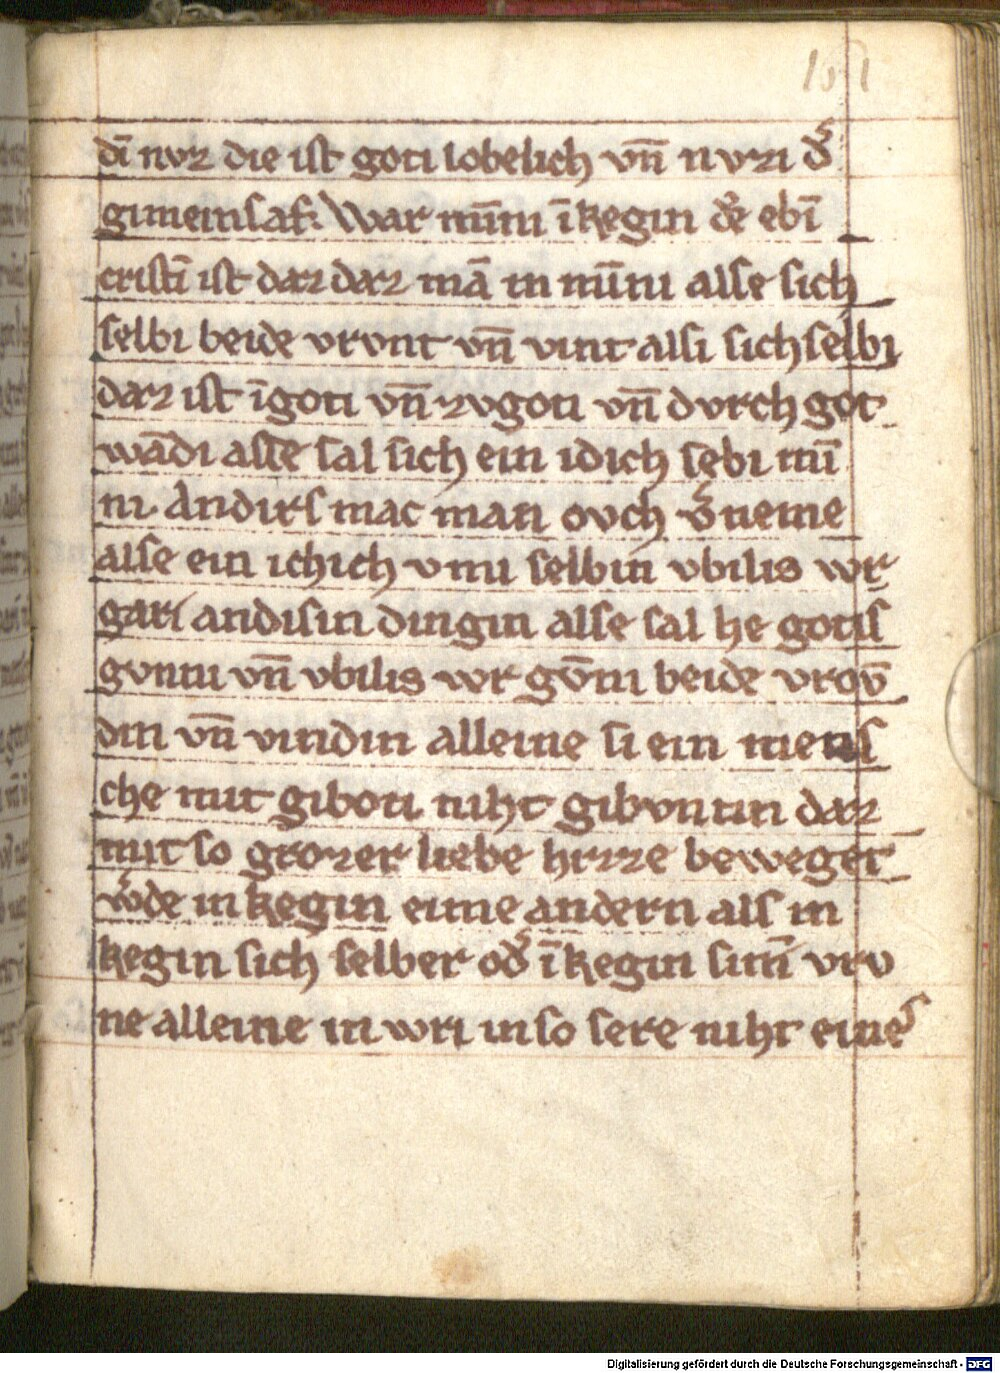 161
dī nvz die ist goti lobelich vn̄ nvzi d͛
gimeinsaf. War mīni ī kegin d͛ ebī
cristī ist daz daz mā in mīni alse sich
selbi beide vrvnt vn̄ vint alsi sich selbi
daz ist ī goti vn̄ zvgoti vn̄ dvrch got
wādi alse sal sich ein idich sebi mī
ni. Andirs mac man ovch v͛neme
alse ein ichich vmi selbin vbilis wr
gari andisin dingin alse sal he gotis
gvntu vn̄ vbilis wr gv̄ni beide vrov̄
din vn̄ vindin alleine si ein mens
che mit giboti niht gibvntin daz
mit so grozer liebe hrzze beweget
w͛de in kegin eime andern als in
kegin sich selber od͛ ī kegin sinē vrv
ne alleine in wri in so sere niht eines
Digitalisierung gefördert durch die Deutsche Forschungsgemeinschaft - DFG